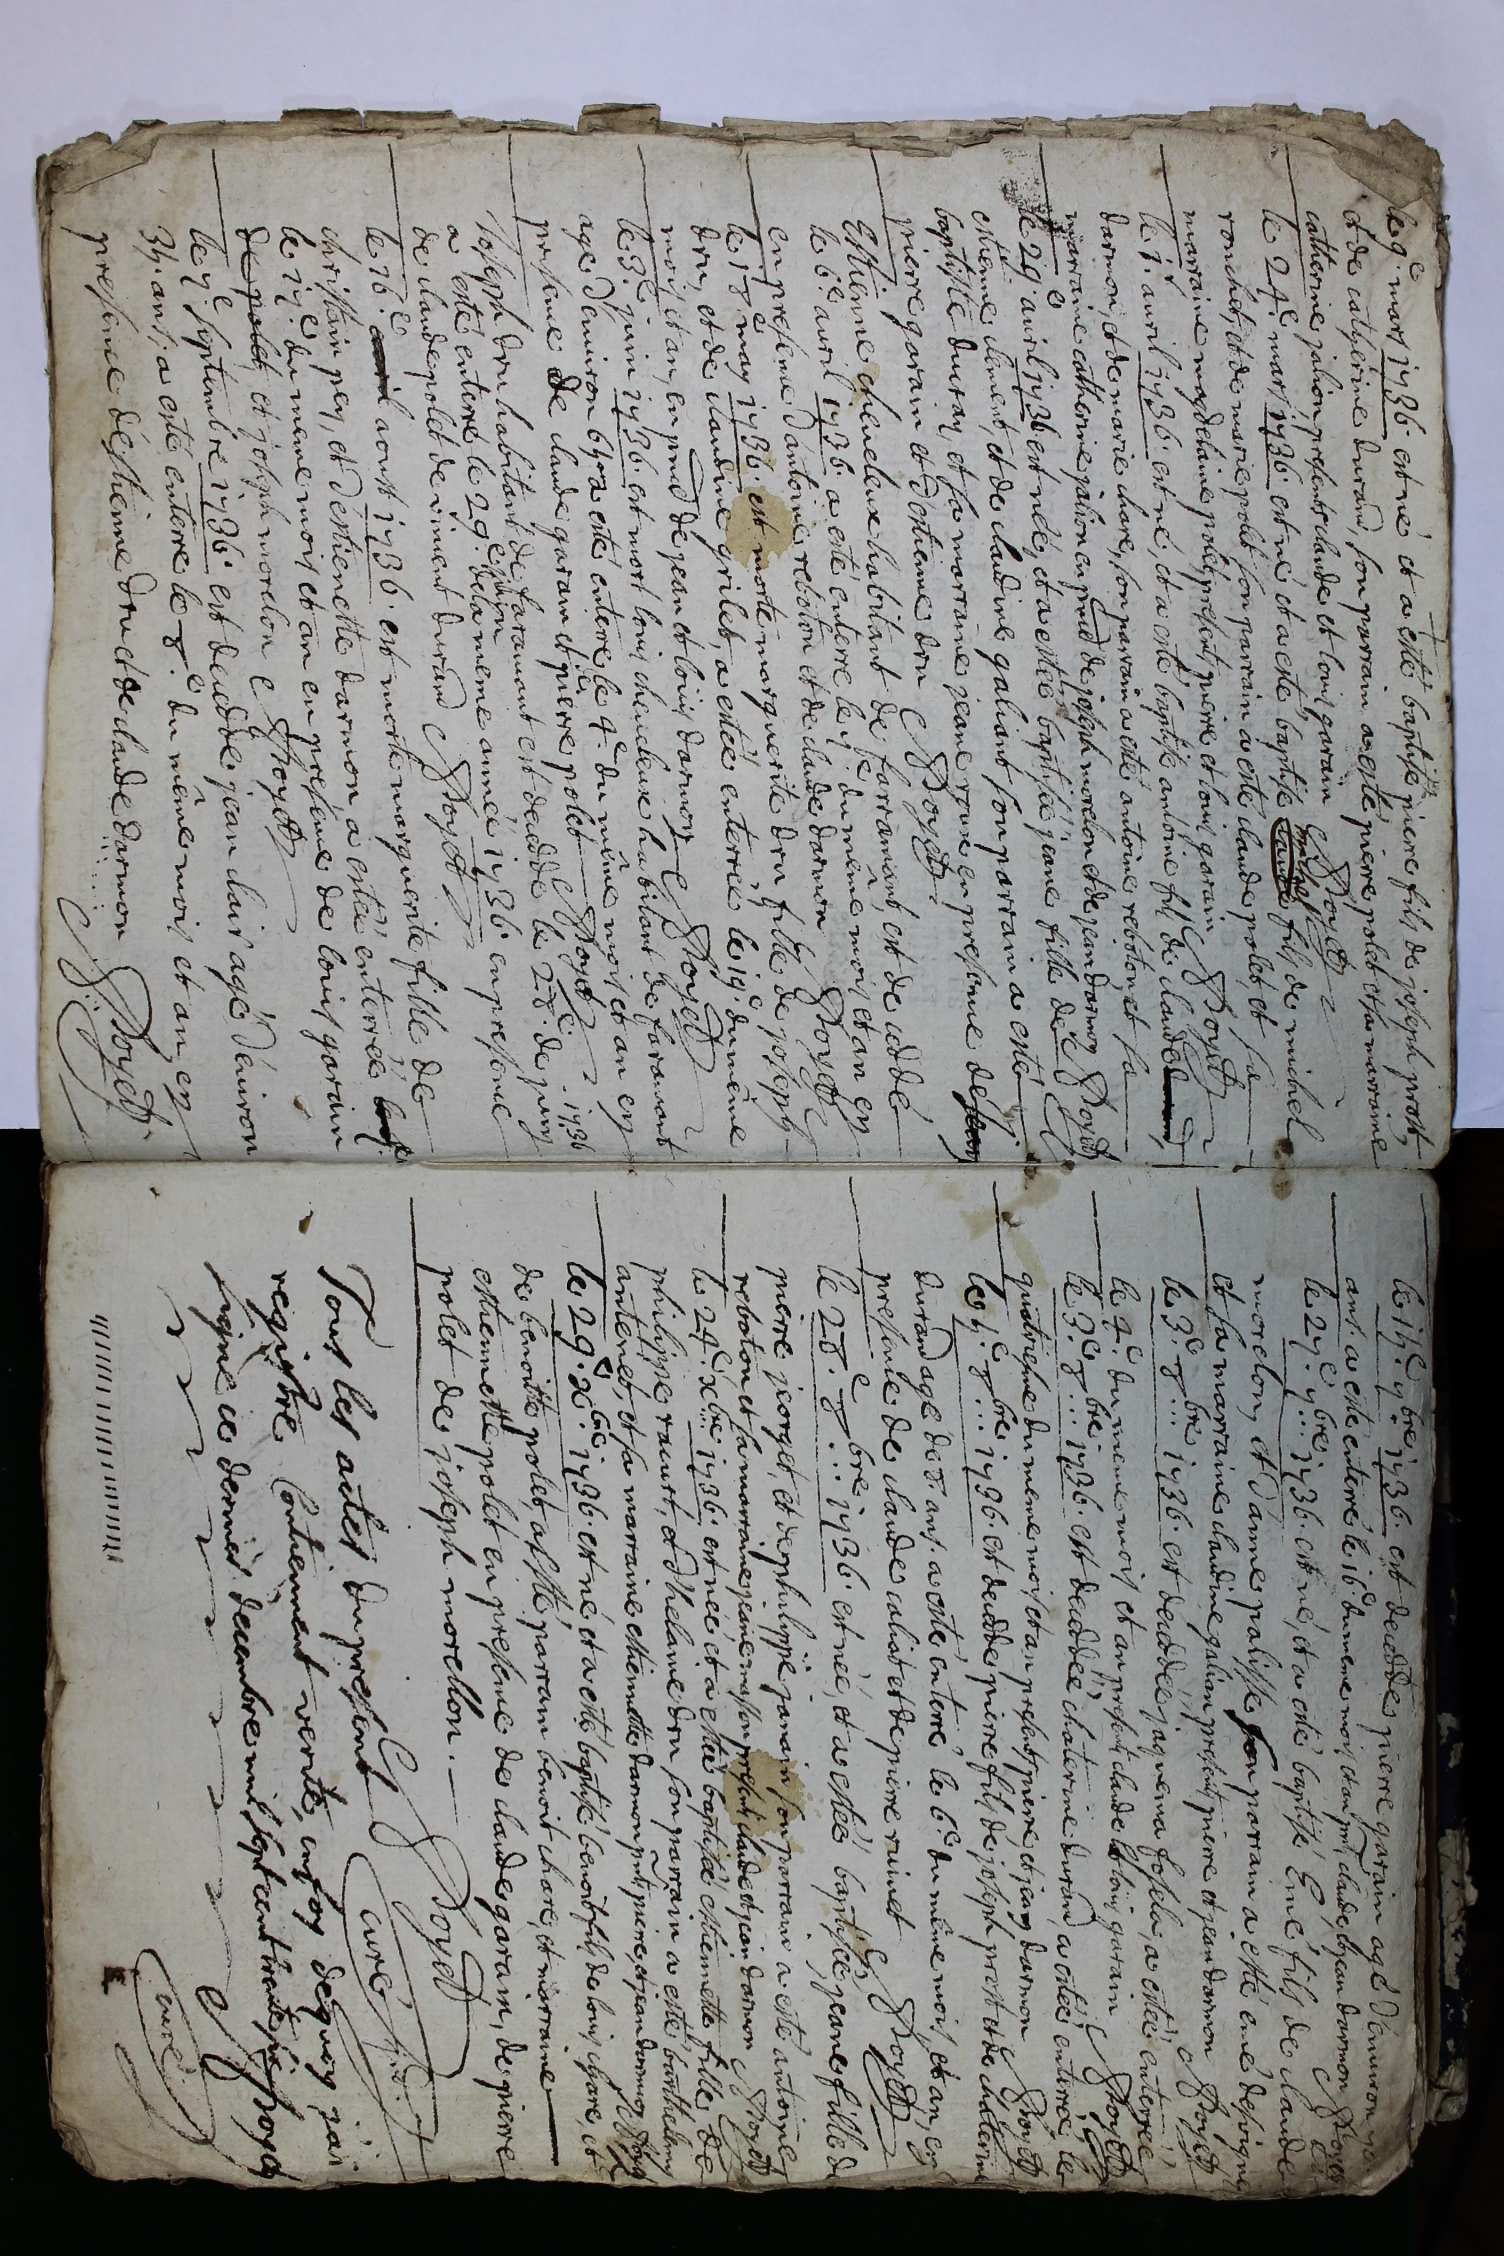 le 9.e mars 1736. est né et a esté baptisé pierre fils de joseph prast,
et de catherine durand, son parrain a esté pierre polet et sa marraine
catherine jalion presents claude et louis garain Doyett
le 24.e mars 1736. est né et a esté baptisé antoine fils de michel
ronchet, et de marie polet son parrain a esté claude polet, et sa
marraine magdelaine polet, présents pierre et louis garain Doyett
le 1. avril 1736. est né, et a esté baptisé antoine fils de claude
darmon, et de marie chare, son parrain a esté antoine reboton, et sa
marraine catherine jalion en pnce de joseph morelon et de jean darmon Doyett
le 29.e avril 1736. est née, et a estée baptisée jeane fille de
estienne clement, et de claudine galiant son parrain a esté
baptiste duray, et sa marraine jeane en presence de
pierre garain et d'estienne dru Doyett
Estienne cheucleux habitant de farramant, est decedde
le 6.e avril 1736. a esté enterre le 7.e du même mois et an en
presence d'antoine reboton et de claude darmon Doyett
le 18.e may 1736. est morte marguerite dru fille de joseph
dru, et de claudine grilet, a estée enterrée le 19.e du même
mois et an, en pnce de jean et louis darmon Doyett
le 3.e juin 1736. est mort louis cheucleux habitant de faramant
age d'environ 65 a esté enterré le 4.e du même mois et an en
presence de claude garain et pierre polet Doyett
joseph dru habitant de faramant est decedde le 28.e de juin 1736
a esté enterré le 29.e de la meme année 1736. en presence
de claude polet de vincent durand Doyett
le 16.e aoust 1736. est morte marguerite fille de
christain pey, et d'estienette darmon a estée enterrée
le 17.e du meme mois et an en presence de louis garain
et joseph morelon Doyett
le 7.e septembre 1736. est decedde jean clair agé d'environ
35. ans, a esté enterre le 8.e du même mois et an en
presence d'estienne dru et de claude darmon Doyett
le 15.e 9.bre 1736. est decedde pierre garain agé d'environ
ans. a esté enterré le 16.e du meme mois et an pnts claude, et jean darmon Doyett
le 27.e 9.bre 1736. est né, et a esté baptisé Emé fils de claude
morelon, et d'anne palisse son parrain a esté emé
et sa marraine claudine galian presents pierre et jean darmon Doyett
le 3.e 8.bre 1736. est deceddée a estée enterree
le 4.e du meme mois et an presents claude et louis garain Doyett
le 3.e 8.bre 1736. est deceddée chaterine durand, a estée enterrée le
quatriesme du meme mois et an presents pierre et jean darmon Doyett
le 5.e 8.bre 1736. est decedde pierre fils de joseph prast et de chaterine
durand age de 8. ans. a esté enterré le 6.e du même mois, et an, en
presence de claude caliat et de pierre ruinet Doyett
le 28.e 8.bre 1736. est née, et a estée baptisée, jeane fille de
pierre jeorget, et de philippe janain son parrain a esté antoine
reboton, et sa marraine jeane masson presents claude et jean darmon Doyett
le 24.e xbre 1736. est née et a estée baptisée estiennette fille de
philippe racurt, et d'helaine dru son parrain a esté barthelemy
antenet, et sa marraine estiennette darmon pnts pierre, et jean darmon Doyett
le 29.e xbre 1736. est né et a esté baptisé benoit fils de louis chare, et
de benoitte polet, a esté parrain benoit chare, et marraine
estiennette polet en presence de claude garain, de pierre
polet de joseph morellon. Doyett
Tous les actes du present
registre contiennent verité, en foy dequoy j'ai
signé ce dernier decembre mil sept cent trante six Doyett
curé